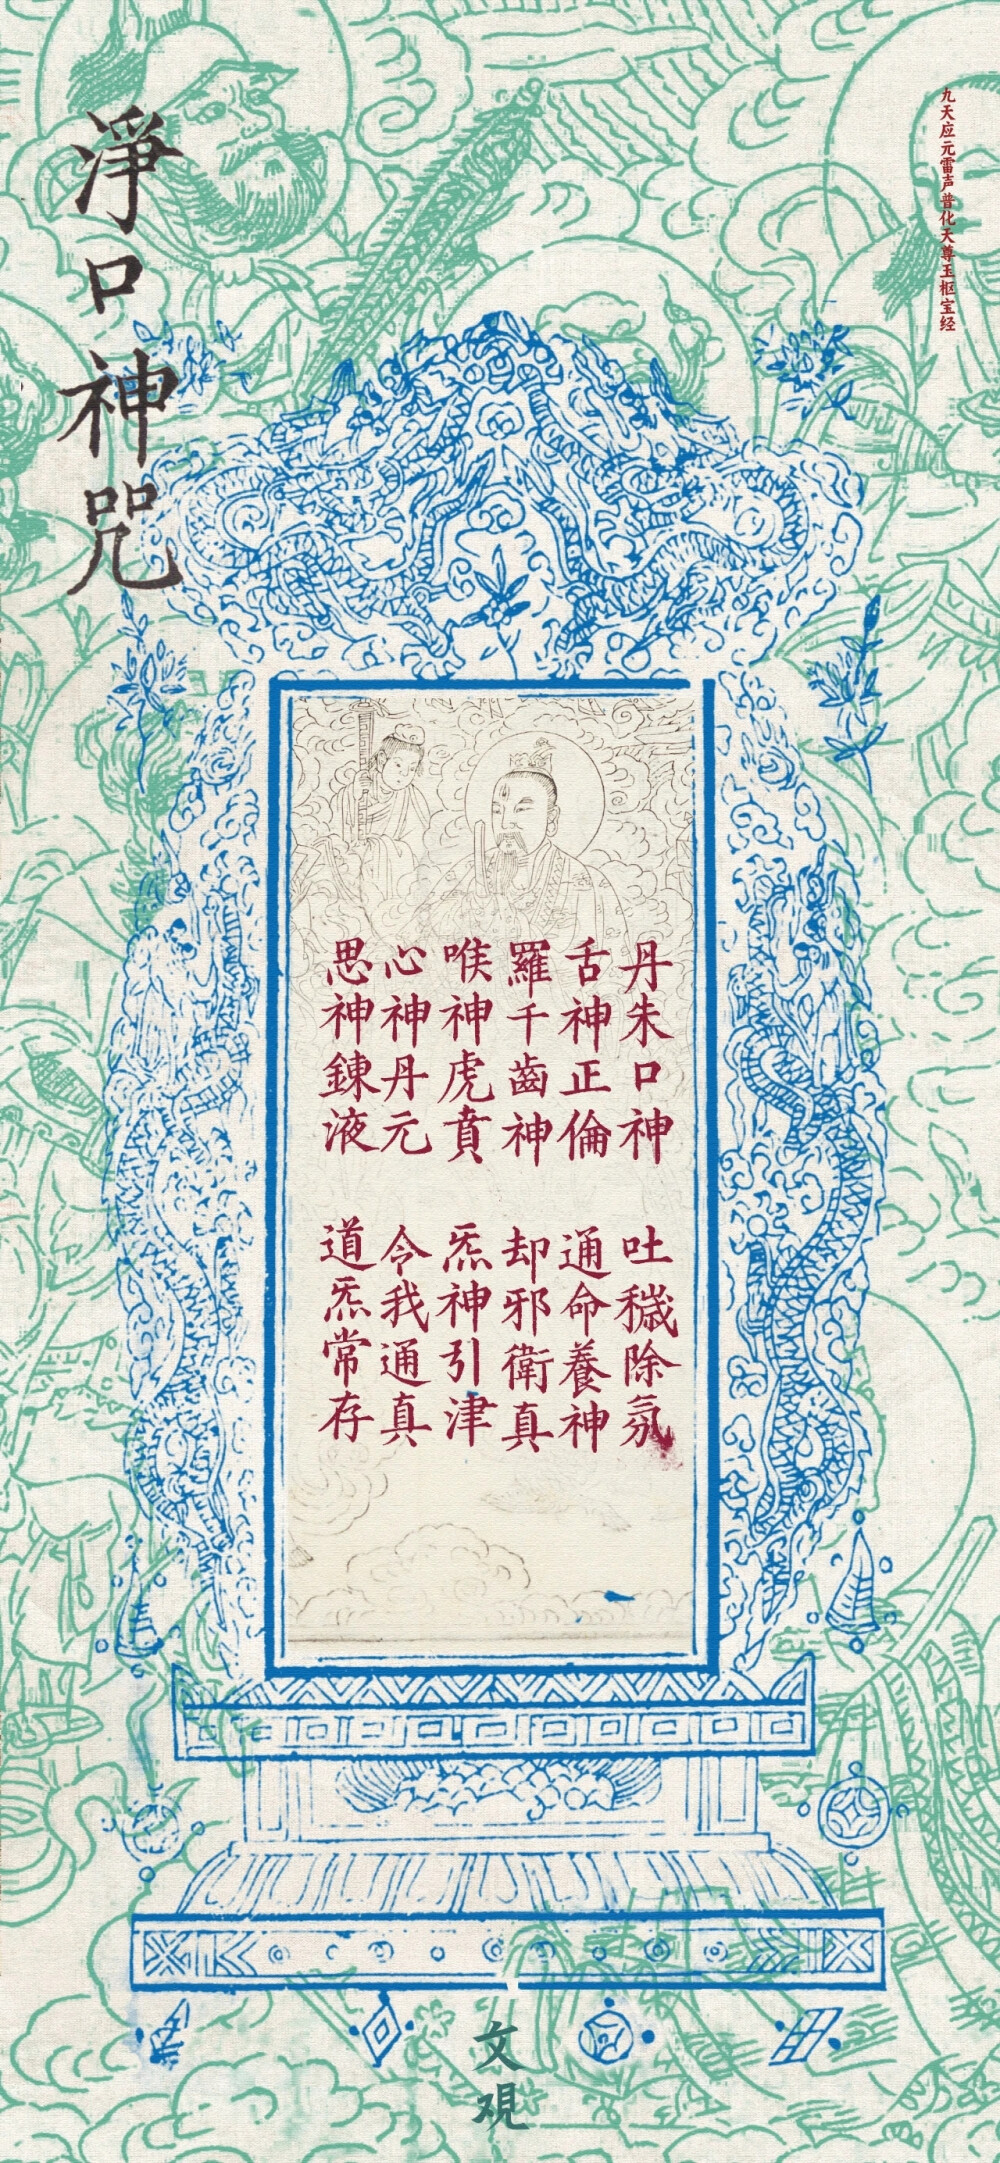 九天应元雷声普化天尊玉枢宝经
淨口神咒
丹朱口神 吐穢除氛
舌神正倫 通命養神
羅千齒神 却邪衛真
喉神虎賁 炁神引津
心神丹元 令我通真
思神鍊液 道炁常存
文观